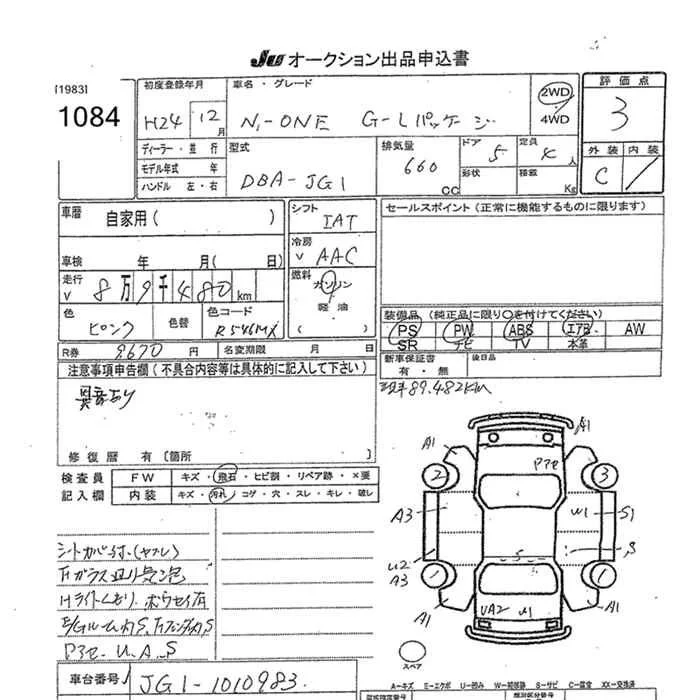 JU オークション出品申込書
[1983]
1084
初度登録年月
H24 12月
車名・グレード
N-ONE G-Lパッケージ
2WD
4WD
評価点
3
外装 内装
C
ディーラー・並行
モデル年式 年
ハンドル 左・右
型式
DBA-JG1
排気量
660 CC
ドア 5
形状
定員 4人
積載 Kg
車歴 自家用( )
車検 年 月( 日)
走行 8万9千480km
色 ピンク 色替
色コード R546MX
シフト IAT
冷房 AAC
燃料 ガソリン
軽油
( )
セールスポイント(正常に機能するものに限ります)
装備品(純正品に限り○を付けてください)
PS PW ABS エアB AW
SR ナビ TV 本革
R券 8670円 名変期限 月 日
新車保証書
有・無
後日品
注意事項申告欄(不具合内容等は具体的に記入して下さい)
異音あり
89.482KM
修復歴 有[箇所 ]
検査員
記入欄
FW キズ・飛石・ヒビ割・リペア跡・×要
内装 キズ・汚れ・コゲ・穴・スレ・キレ・破レ
A1 A1
P3e
2 3
A3 W1 S1
U2 S S
A3
1 1
A1 UA2 U1 A1
スペア
シートカバー付(ヤブレ)
Fガラス辺り気泡
Hライトくもり.
E/Gルーム内S、
P3e U.A.S
車台番号 JG1-1010983.
A-キズ E-エクボ U-凹み S-サビ C-腐食 XX-交換済